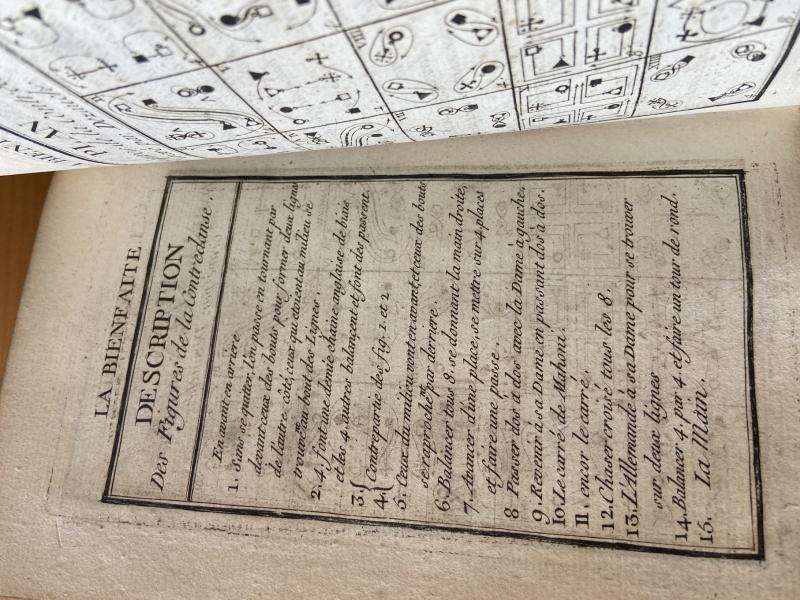 LA BIENFAITE
DESCRIPTION
Des Figures de la Contredanse.
En avant en arriere
1. Sans se quitter l'on passe en tournant par
devant ceux des bouts pour former deux lignes
de lautre côté, ceux qui étoient au milieu se
trouvent au bout des Lignes.
2. 4. font une demie chaine anglaise de biais
et les 4. autres blancent et font des passent.
3.
4. { Contrepartie des fig. 1. et 2
5. Ceux du milieu vont en avant et ceux des bouts
se raprochent par derriere.
6. Balancer tous 8. se donnant la main droite,
7. Avancer d'une place, se mettre sur 4 places
et faire une passe.
8 Passer dos a dos avec la Dame a gauche.
9. Revenir à sa Dame en passant dos à dos.
10. Le carré de Mahoni.
11. encor le carré.
12. Chaser croisé tous les 8.
13. L'Allemande à sa Dame pour se trouver
sur deux lignes
14. Balancer 4. par 4. et faire un tour de rond.
15. La Main.
PLAN
VIII
III